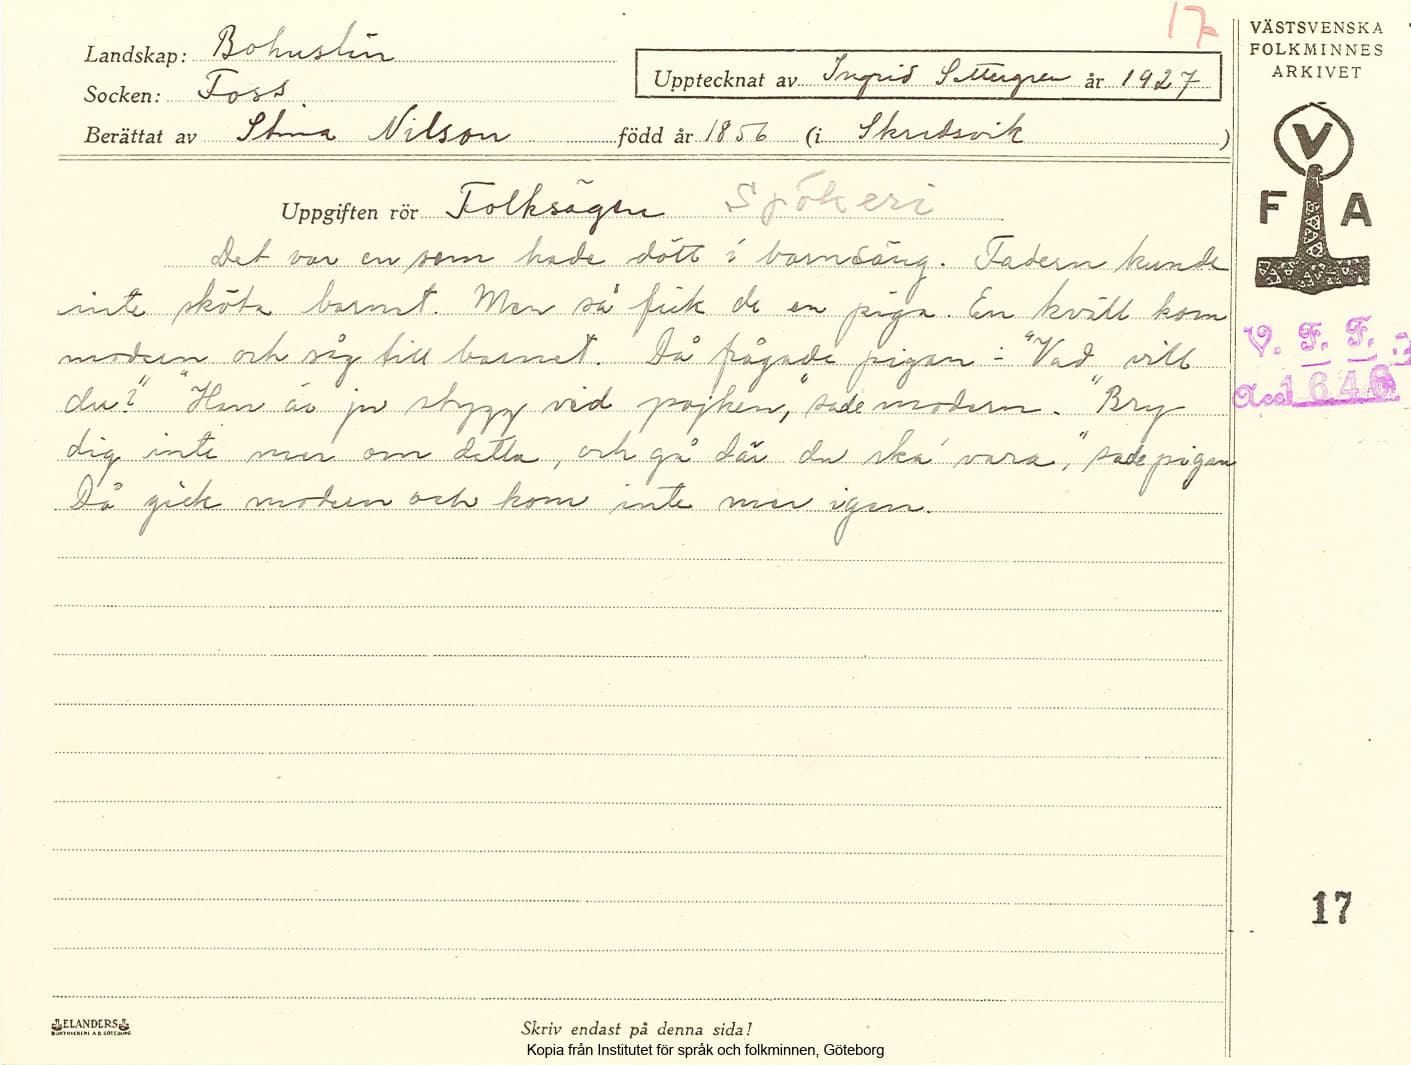 17
Landskap: Bohuslän
Socken: Foss
Berättat av Stina Nilson född år 1856 (i Skredsvik )
Upptecknat av Ingrid Settergren år 1927
VÄSTSVENSKA
FOLKMINNES
ARKIVET
V
F A
Uppgiften rör Folksägen Spökeri
Det var en som hade dött i barnsäng. Fadern kunde
inte sköta barnet. Men så fick de en piga. En kväll kom
modern och såg till barnet. Då frågade pigan:- "Vad vill
du?" "Han är ju stygg ve'd pojken," sade modern. "Bry
dig inte mer om detta, och gå där du ska' vara," sade pigan
Då gick modern och kom inte mer igen.
V. F. F.
Acc 1646
17
ELANDERS
BOKTRYCKERI A.B. GÖTEBORG
Skriv endast på denna sida!
Kopia från Institutet för språk och folkminnen, Göteborg